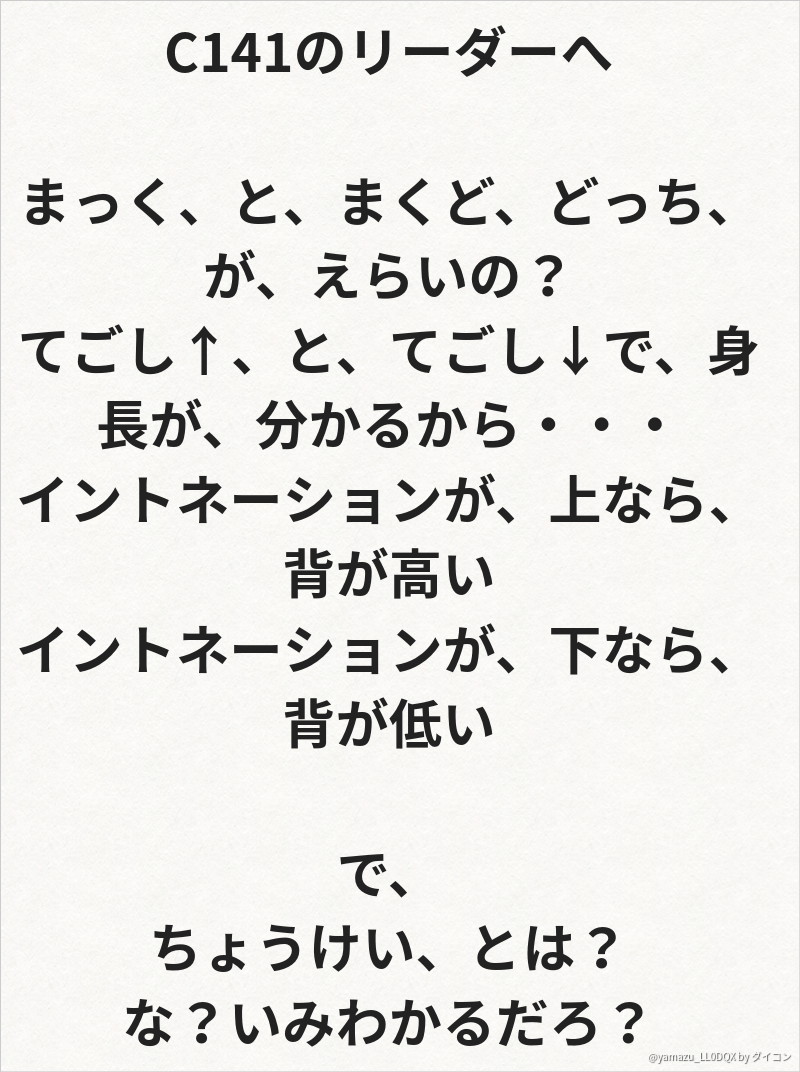 C141のリーダーへ
まっく、と、まくど、どっち、
が、えらいの？
てごし↑、と、てごし↓で、身
長が、分かるから・・・
イントネーションが、上なら、
背が高い
イントネーションが、下なら、
背が低い
で、
ちょうけい、とは？
な？いみわかるだろ？
@yamazu_LL0DQX by ダイコン